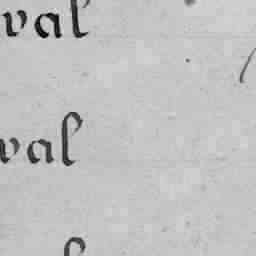 val
val